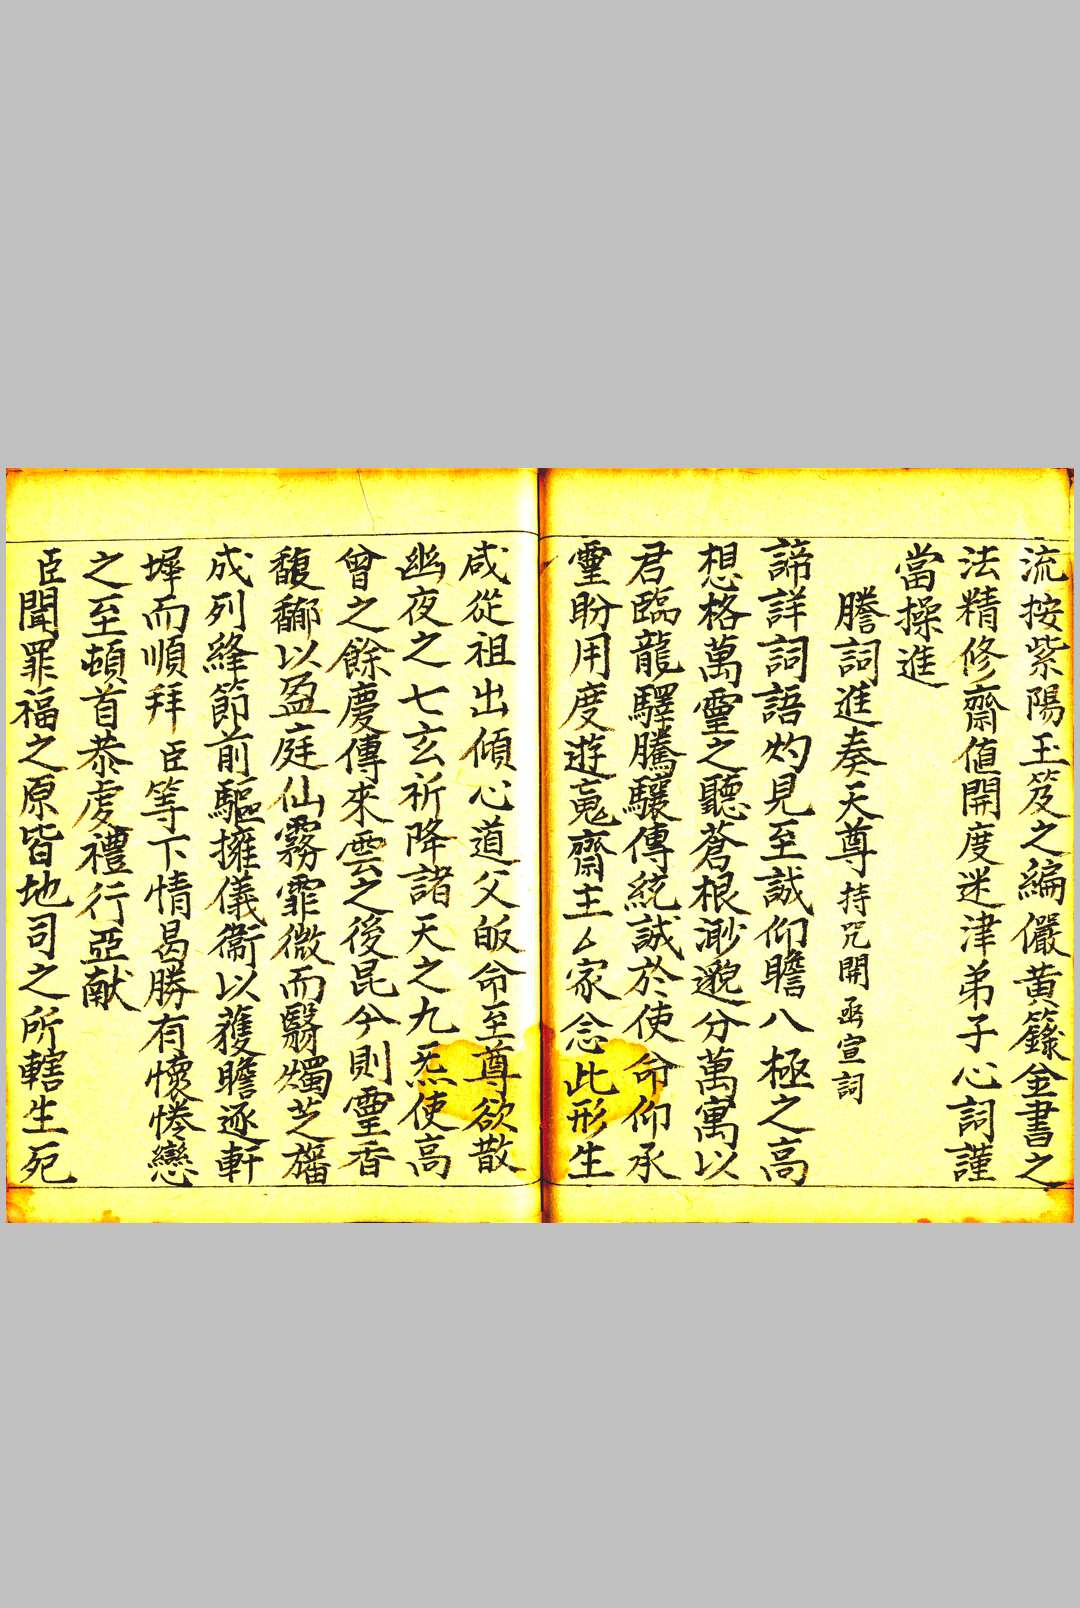 流按紫陽玉笈之編儼黄籙金書之
法精修齋值開度迷津弟子心詞謹
當操進
謄詞進奏天尊持咒開函宣詞
諦詳詞語灼見至誠仰瞻八極之高
想格萬靈之聽蒼根渺邈分萬寓以
君臨龍驛騰驤傳綂誠於使命仰承
靈盼用度遊䰟齋主厶家念此形生
咸從祖出傾心道父皈命至尊欲散
幽夜之七玄祈降諸天之九炁使高
曾之餘慶傳來雲之後昆今則靈香
馥鬱以盈庭仙霧霏微而翳燭芝旛
成列絳節前驅擁儀衞以䕶瞻逐軒
墀而順拜臣等下情曷勝有懷惓戀
之至頓首恭虔禮行亞献
臣聞罪福之原皆地司之所轄生死